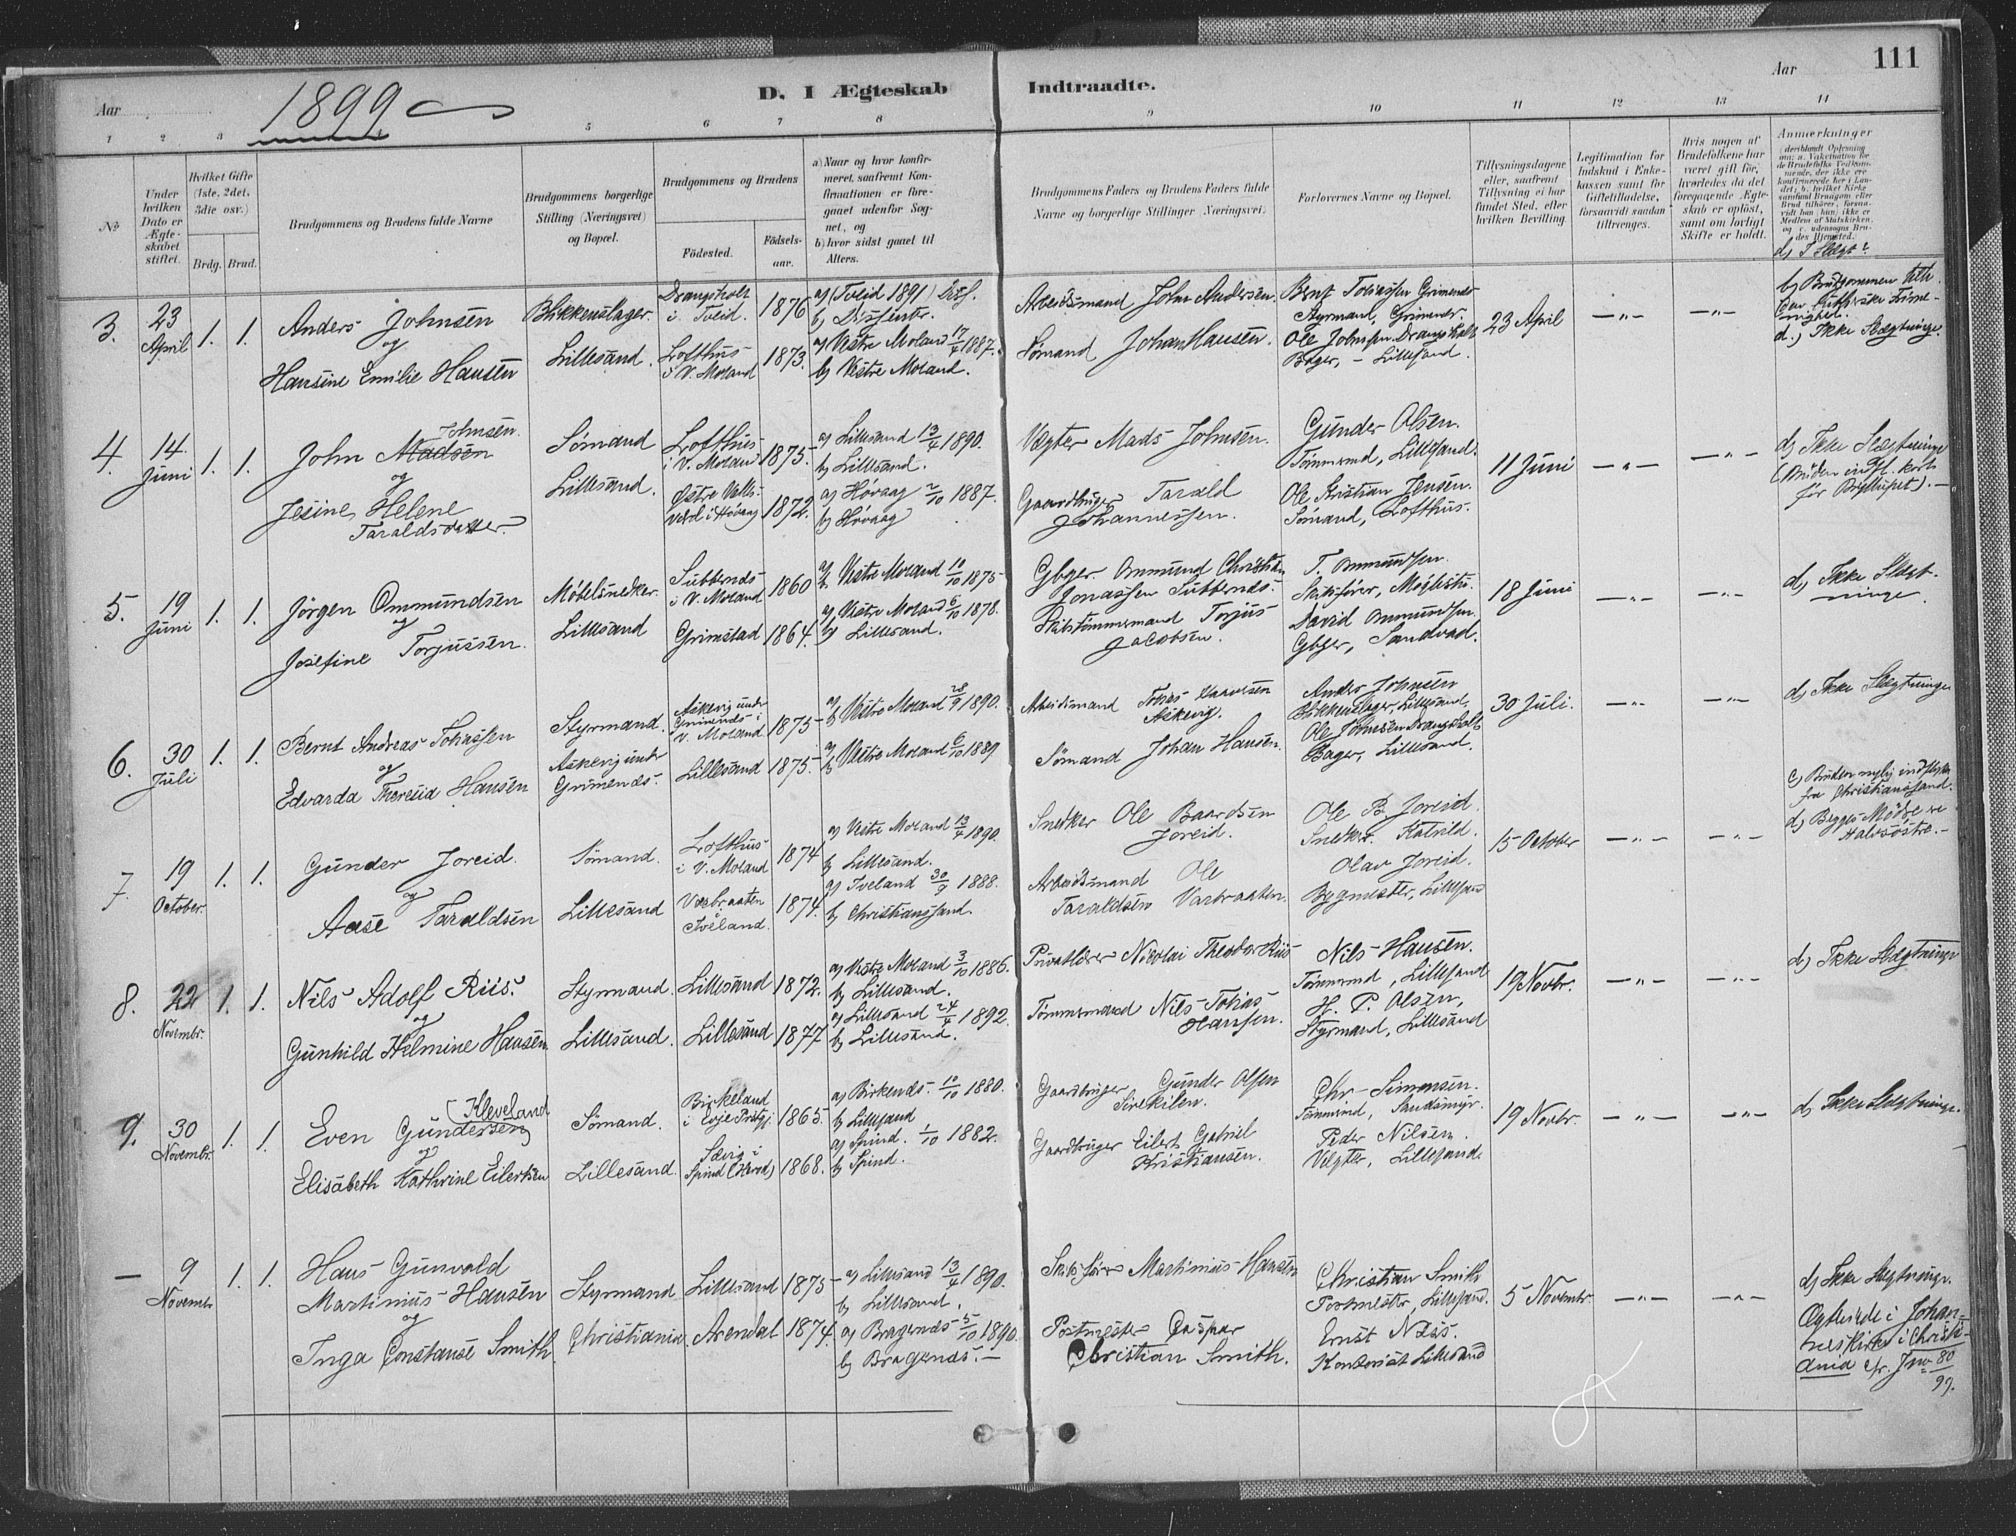 Aar
1899
D. I Ægteskab
Indtraadte.
Aar
111
1 2 3 5 6 7 8 9 10 11 12 13 14
No
Under hvilken Dato er Ægteskabet stiftet.
Hvilket Gifte (1ste, 2det, 3die osv.)
Brdg. Brud.
Brudgommens og Brudens fulde Navne
Brudgommens borgerlige Stilling (Næringsvei) og Bopæl.
Brudgommens og Brudens
Fødested.
Fødselsaar.
a) Naar og hvor konfirmeret, saafremt Konfirmationen er foregaaet udenfor Sognet, og
b) hvor sidst gaaet til Alters.
Brudgommens Faders og Brudens Faders fulde Navne og borgerlige Stillinger (Næringsvei).
Forlovernes Navne og Bopæl.
Tillysningsdagene eller, saafremt Tillysning ei har fundet Sted, efter hvilken Bevilling.
Legitimation for Indskud i Enkekassen samt for Giftetilladelse, forsaavidt saadan tiltrænges.
Hvis nogen af Brudefolkene har været gift før, hvorledes da det foregaaende Ægteskab er opløst, samt om lovligt Skifte er holdt.
Anmærkninger
d) I Slægt?
3. 23 April 1. 1.
Anders Johnsen
og
Hansine Emilie Hansen
Blikkenslager.
Lillesand.
Drangsholt i Tveid. 1876
Lofthus i V. Moland 1873.
a) (Tveid 1891)
b) Dissenter.
a) Vestre Moland 17/4 1887.
b) Vestre Moland.
Arbeidsmand John Andersen.
Sømand Johan Hansen.
Bernt Tobiassen Grimenes
Styrmand, Grimenes.
Ole Johnsen Drangsholt
Bager, - Lillesand.
23 April
—„— —„—
b) Brudgommen
d.) Ikke Slægtninge.
4. 14 Juni 1. 1.
Johnsen.
John Madsen
og
Jesine Helene
Taraldsdatter.
Sømand
Lillesand.
Lofthus i V. Moland 1875.
Østre Valls- i Høvaag 1872.
a) Lillesand 13/4 1890.
b) Lillesand.
a) Høvaag 2/10 1887.
b) Høvaag
Vægter Mads Johnsen.
Gaardbruger Tarald
Johannessen.
Gunder Olsen.
Tømmermd, Lillesand.
Ole Kristian Jensen.
Sømand, Lofthus.
11 Juni
—„— —„—
d) Ikke Slægtninge
(Bruden indfl. kort
før Bryllupet).—
5. 19 Juni 1. 1.
Jörgen Ommundsen
og
Josefine Torjussen.
Møbelsnedker.
Lillesand
i V. Moland 1860
Grimstad 1864.
a) b) Vestre Moland 10/10 1875
a) Vestre Moland 6/10 1878.
b) Lillesand.
Gbger. Ommund Christian
Jonassen
Skibstømmermand Torjus
Jacobsen.
T. Ommundsen.
David Ommundsen
Gbger, Sandvad.
18 Juni
—„— —„—
d) Ikke Slægt-
ninge.
6. 30 Juli 1. 1.
Bernt Andreas Tobiassen
og
Edvarda Theresia Hansen
Styrmand.
Askevig under Grimenes.
Askevig under Grimenes i V. Moland 1875
Lillesand 1875.
a) b) Vestre Moland 28/9 1890.
a) b) Vestre Moland 6/10 1889
Arbeidsmand Tobias
Askevig.
Sømand Johan Hansen.
Anders Johnsen
Blikkenslager, Lillesand,
Ole Johnsen Drangsholt
Bager, Lillesand.
30 Juli.
—„— —„—
d) Ikke Slægtninge
7. 19 October. 1. 1.
Gunder Joreid.
og
Aase Taraldsen
Sømand.
Lillesand
Lofthus i V. Moland 1874
Varbraaten Iveland. 1874.
a) Vestre Moland 13/4 1890.
b) Lillesand.
a) Iveland 30/9 1888.
b) Christianssand.
Snedker Ole Baardsen
Joreid.
Arbeidsmand Ole
Taraldsen Varbraaten.
Ole B. Joreid.
Snedker.
Olav Joreid.
Bygmester, Lillesand
15 October
—„— —„—
c) Bruden nylig indflyttet
fra Christianssand.
d) Begges Mødre ere
Halvsøstre.—
8. 22 Novembr. 1. 1.
Nils Adolf Riis.
og
Gunhild Helmine Hansen
Styrmand.
Lillesand.
Lillesand 1872.
Lillesand 1877
a) Vestre Moland 3/10 1886.
b) Lillesand.
a) Lillesand 24/4 1892.
b) Lillesand.
Privatlærer Nicolai Theodor Riis
Tømmermand Nils Tobias
Hansen.
Nils Hansen.
Tømmermd, Lillesand
H. P. Olsen,
Styrmand, Lillesand
19 Novbr.
—„— —„—
d) Ikke Slægtninge
9. 30 Novembr. 1. 1.
Kleveland
Even Gundersen
og
Elisabeth Kathrine Eilertsen
Sømand.
Lillesand.
Birkeland i Evje Prstgj. 1865
i Spind (Herred) 1868.
a) Birkenes 10/10 1880.
b) Lillesand
a) Spind. 1/10 1882.
b) Spind.
Gaardbruger Gunder Olsen
Gaardbruger Eilert Gabriel
Kristiansen.
Chr. Simonsen.
Tømmermd, Sandsmyr.
Peder Nilsen.
Vægter, Lillesand.
19 Novbr.
—„— —„—
d) Ikke Slægtninge.
— 9 Novembr 1. 1.
Hans Gunvald
Martinius Hansen
og
Inga Constanse Smith.
Styrmand.
Christiania
Lillesand 1875
Arendal 1874.
a) Lillesand 13/4 1890.
b) Lillesand.
a) Bragernes 5/10 1890.
b) Bragernes.—
Skibsfører Martinius Hansen
Postmester Caspar
Christian Smith.
Christian Smith
Postmester, Lillesand.
Ernst Nils.
Kontorist Lillesand
5 Novembr.
—„— —„—
d) Ikke Slægtninge.
Ægteviede i Johan-
neskirken i Christi-
ania cfr. Jno 80/99.